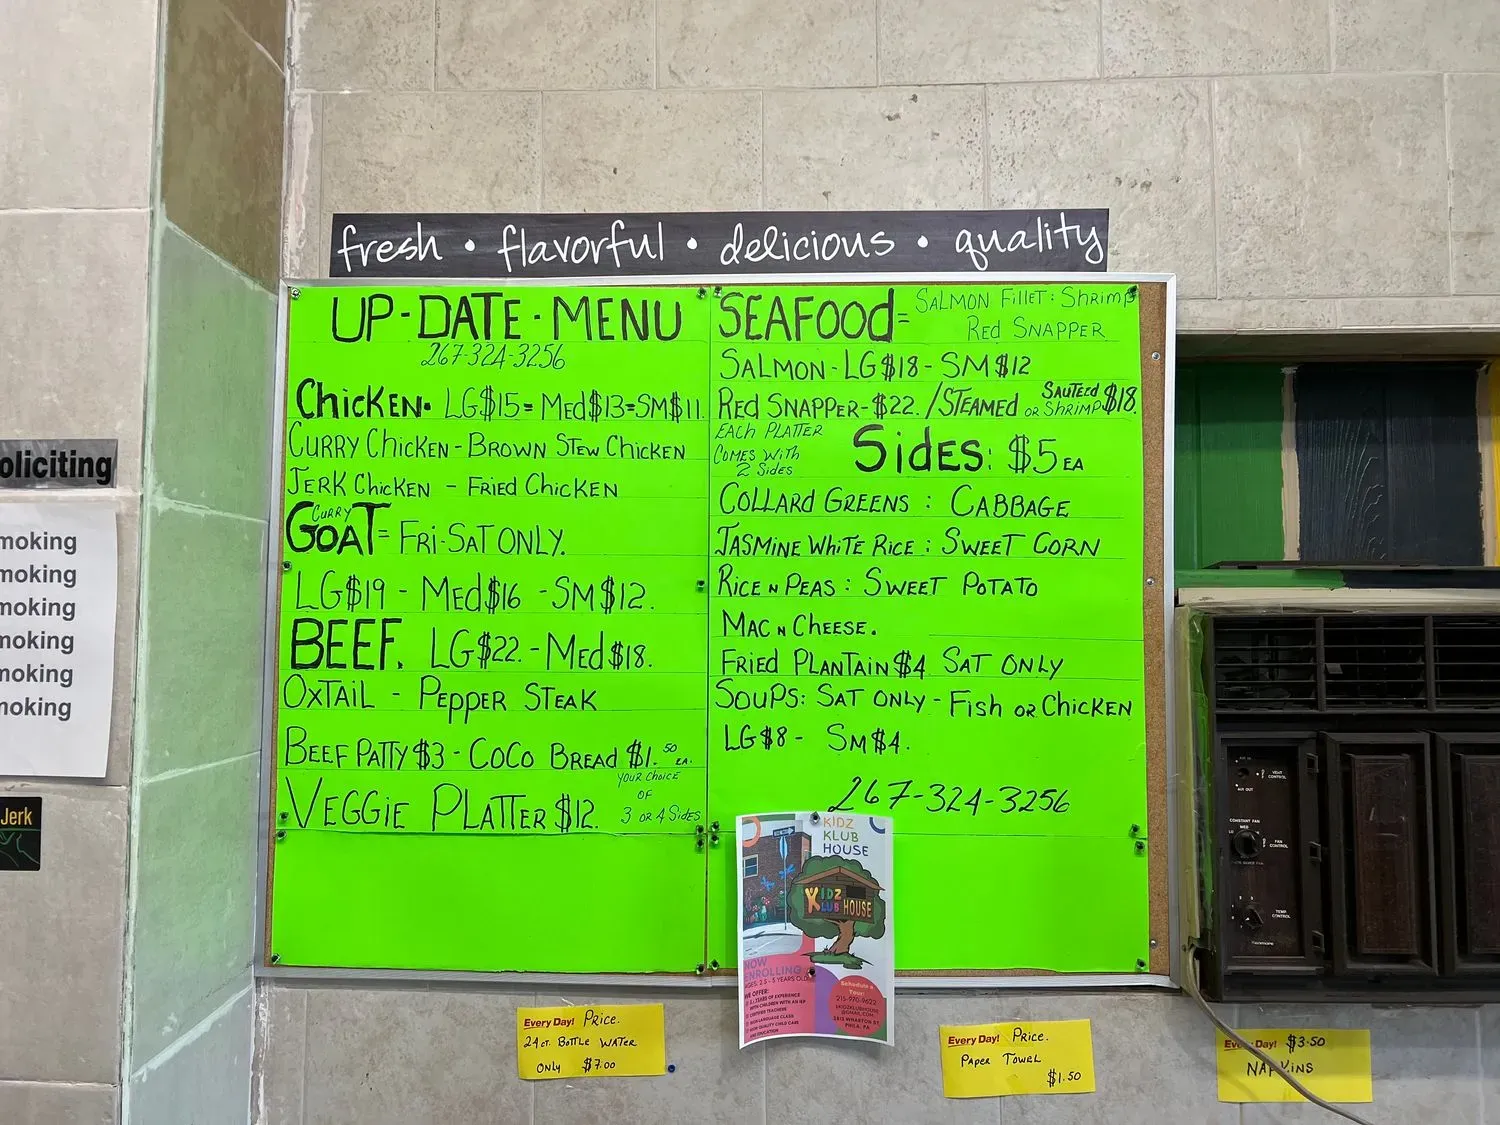 fresh • flavorful • delicious • quality
UP-DATE-MENU
267-324-3256
Chicken- LG$15=Med$13=SM$11.
Curry Chicken - Brown Stew Chicken
Jerk Chicken - Fried Chicken
Curry
GOAT= Fri-Sat Only.
LG$19 - Med$16 - SM$12.
BEEF. LG$22.-Med$18.
Oxtail - Pepper Steak
Beef Patty $3 - CoCo Bread $1.50 ea.
Your Choice
of
3 or 4 Sides
Veggie Platter $12.
SEAFOOd= Salmon Fillet: Shrimp
Red Snapper
Salmon-LG$18-SM$12
Red Snapper-$22./Steamed or Sauteed Shrimp $18.
Each Platter
Comes With
2 Sides
Sides: $5 EA
Collard Greens : Cabbage
Jasmine White Rice : Sweet Corn
Rice n Peas : Sweet Potato
Mac n Cheese.
Fried Plantain $4 Sat Only
Soups: Sat Only - Fish or Chicken
LG$8- SM$4.
267-324-3256
KIDZ
KLUB
HOUSE
KIDZ
KLUB HOUSE
NOW
ENROLLING
AGES: 2.5 - 5 YEARS OLD
WE OFFER:
CERTIFIED TEACHERS
SIGN LANGUAGE CLASS
HIGH QUALITY CHILD CARE
AND EDUCATION
Schedule a
Tour!
215-970-9622
PHILA, PA
Every Day! Price.
24ct. Bottle Water
Only $7.00
Every Day! Price.
Paper Towel
$1.50
Every Day! $3.50
Napkins
oliciting
moking
moking
moking
moking
moking
moking
Jerk
VENT
CONTROL
CONSTANT FAN
MED
LO
FAN
CONTROL
TEMP
CONTROL